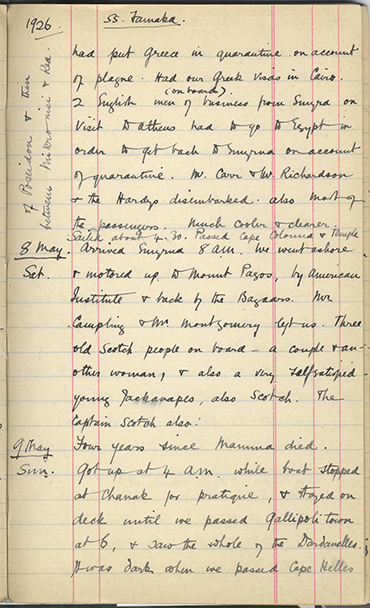 1926
SS. Famaka.
had put Greece in quarantine on account
of plague. Had our Greek visas in Cairo.
(on board).
2 English men of business from Smyrna on
visit to Athens had to go to Egypt in
order to get back to Smyrna on account
of quarantine. Mr. Carr & Mr. Richardson
& the Hardys disembarked. also most of
the passengers. Much cooler & clearer.
Sailed about 4.30. Passed Cape Colonna & Temple
of Poseidon & then
between Mikronisi & Kea.
8 May. Arrived Smyrna 8 A.M. We went ashore
Sat. & motored up to Mount Pagos, by American
Institute & back by the Bazaars. Mr.
Campling & Mr. Montgomery left us. Three
old Scotch people on board – a couple & an-
other woman, & also a very self satisfied
young Jackanapes, also Scotch. The
Captain Scotch also!
9 May Four years since Mamma died.
Sun. Got up at 4 A.M. while boat stopped
at Chanak for pratique, & stayed on
deck until we passed Gallipoli town
at 6, & saw the whole of the Dardanelles.
It was dark when we passed Cape Helles